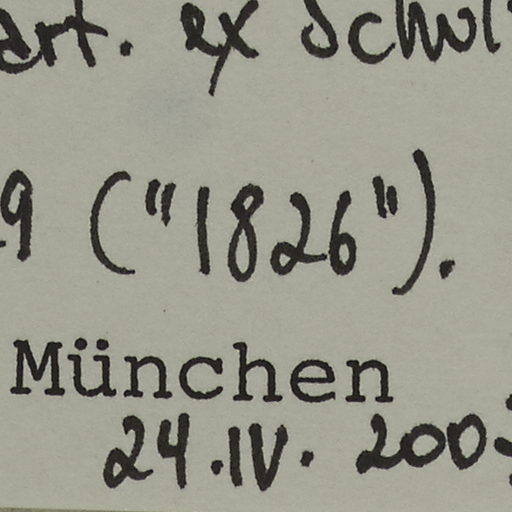 art. ex Schul
9 ("1826").
München
24.IV. 200